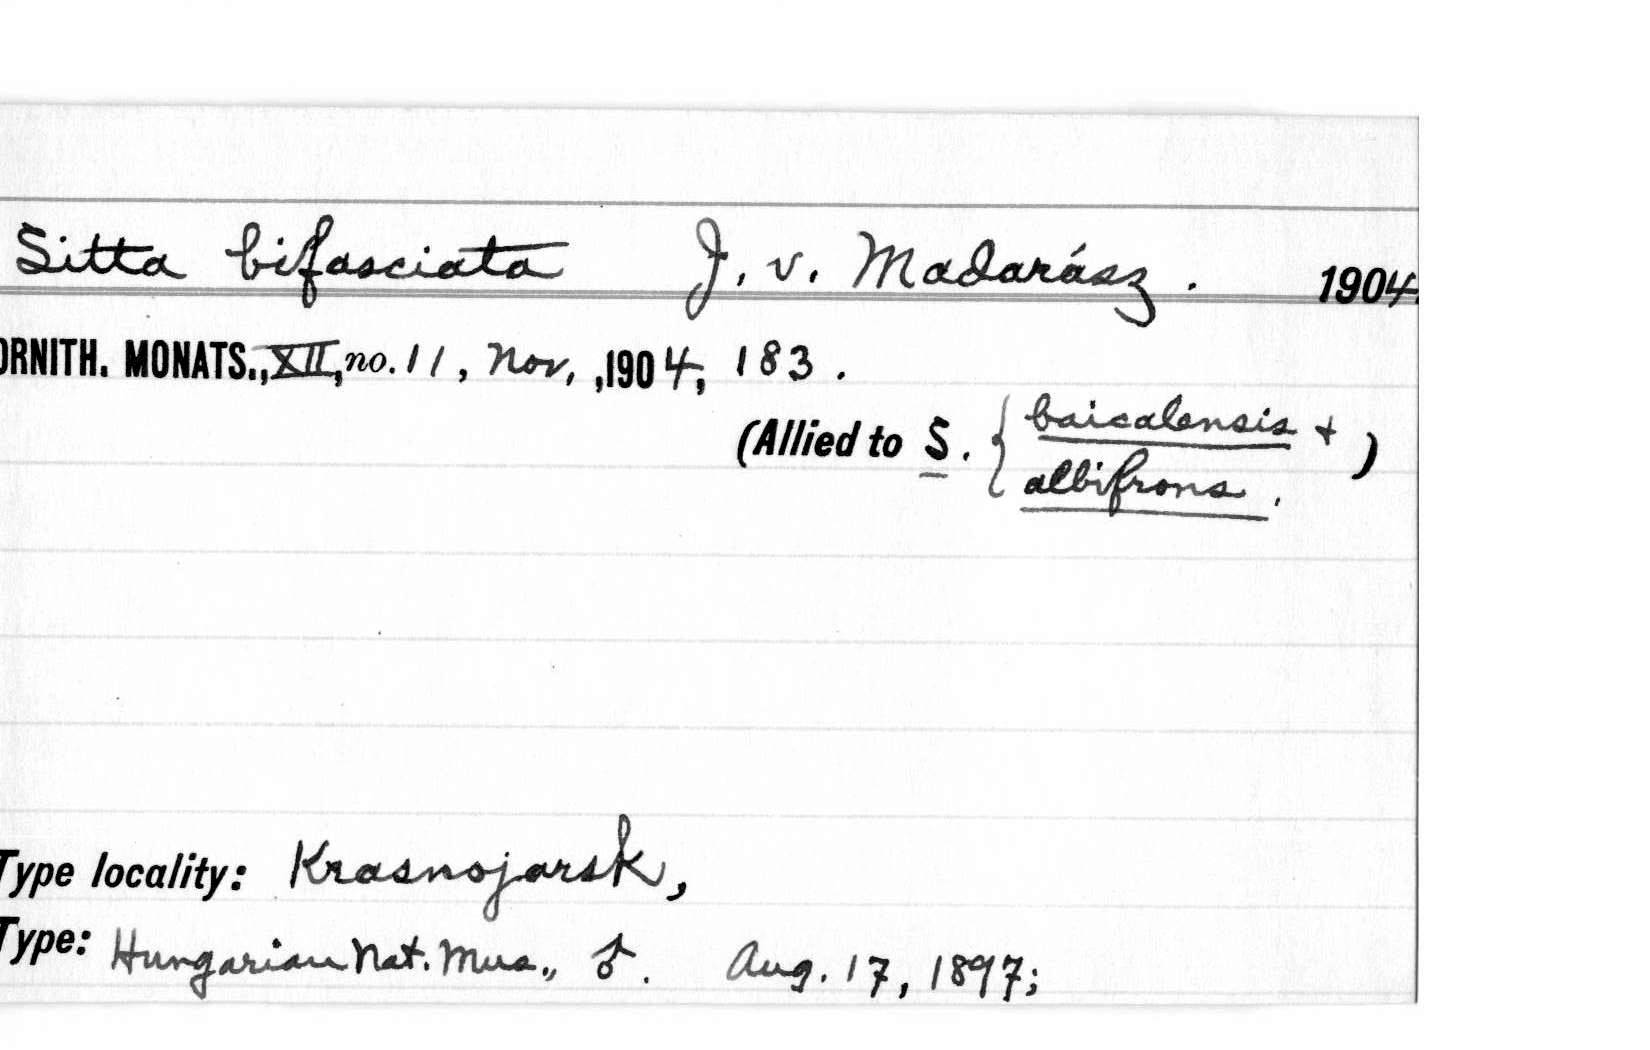 Sitta bifasciata J. v. Madarász. 1904.
ORNITH. MONATS., XII, no. 11, Nov., 1904, 183.
(Allied to S. { baicalensis + )
albifrons.
Type locality: Krasnojarsk,
Type: Hungarian Nat. Mus., ♂. Aug. 17, 1897;